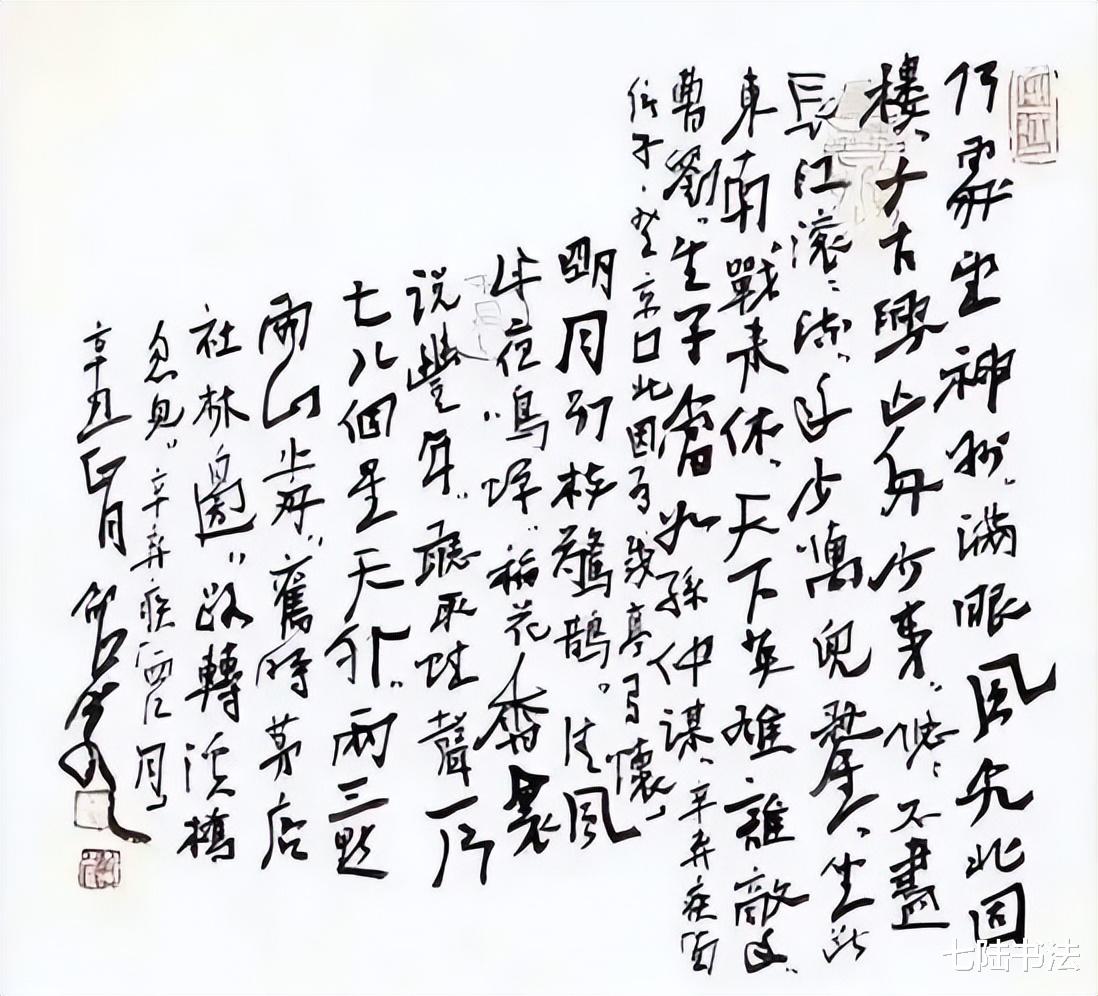 何處望神州。满眼風光北固
樓。千古興亡多少事。悠悠不盡
長江滚滚流。年少萬兜鍪。坐断
東南戰未休。天下英雄誰敵手。
曹劉。生子當如孫仲謀。辛弃疾南
子·登京口北固亭有懷
明月别枝驚鹊。清風
半夜鳴蝉。稻花香裏
说豐年。聽取蛙聲一片
七八個星天外。兩三點
雨山前。舊時茅店
社林邊。路轉溪橋
忽見。辛弃疾西江月
辛丑正月
七陆书法